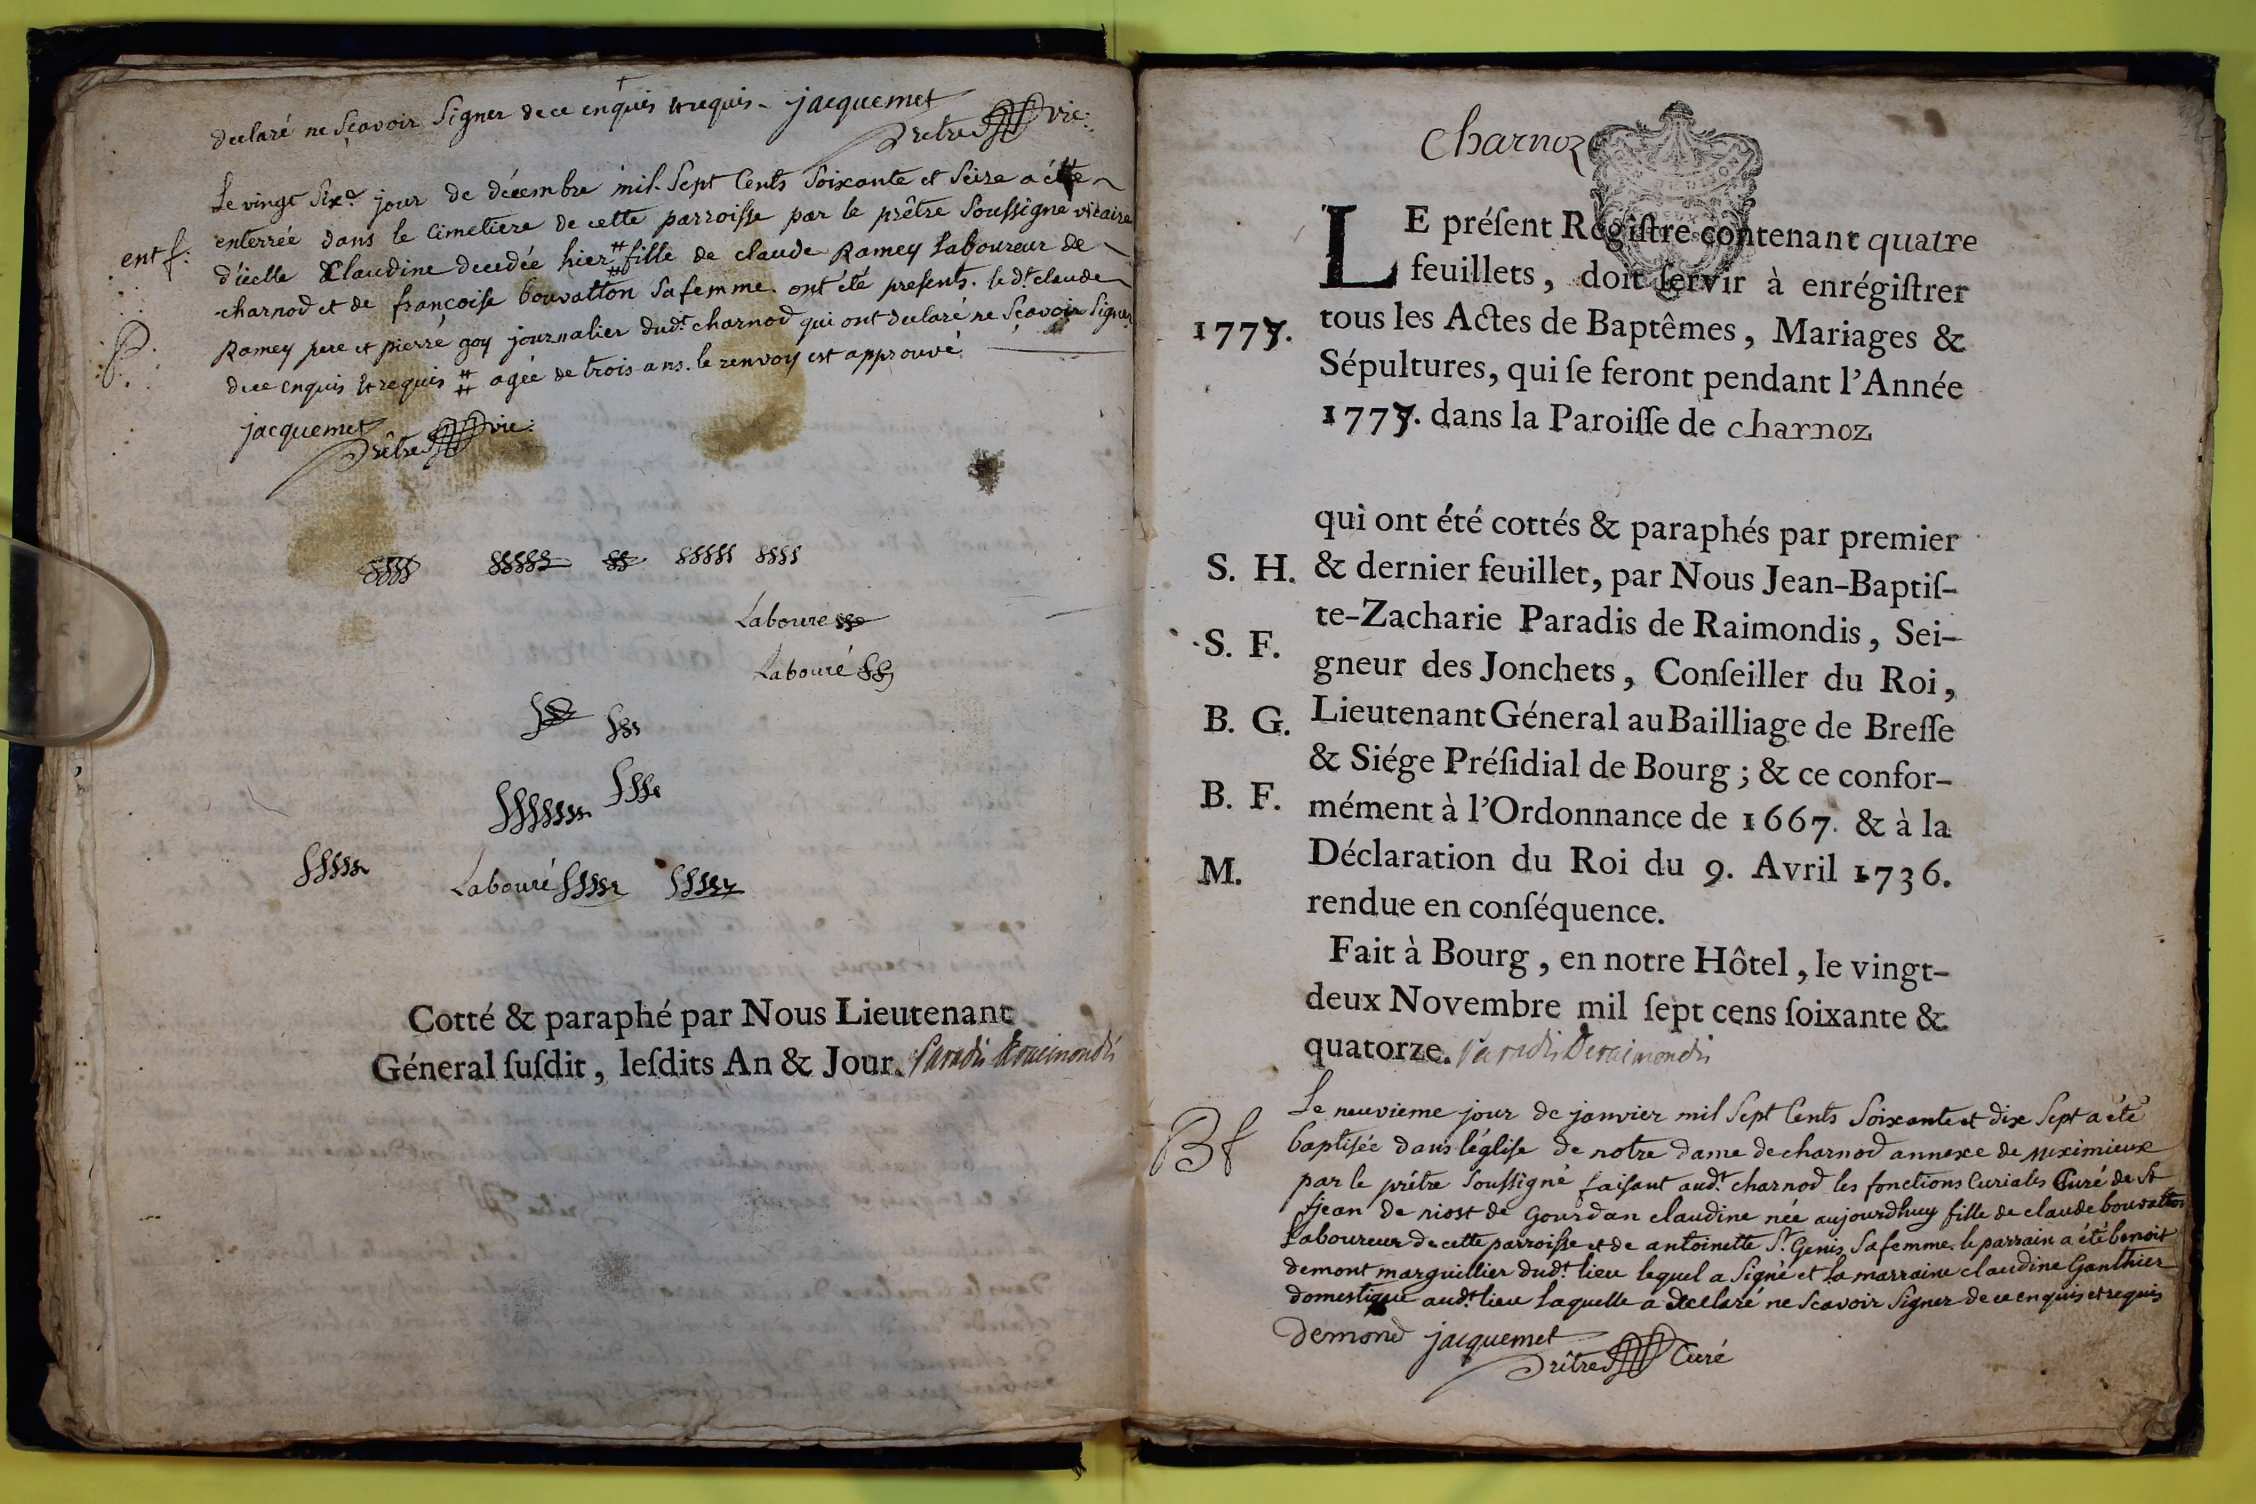 declaré ne sçavoir signer de ce enquis et requis. jacquemet
prêtre vic:
Le vingt sixe jour de décembre mil sept cents soixante et seize a été
enterrée dans le cimetiere de cette parroisse par le prêtre soussigné vicaire
ent f:
d'icelle Claudine decedée hier # fille de claude Ramey laboureur de
charnod et de françoise bouvatton sa femme. ont été presents. le dt claude
Ramey pere et pierre goy journalier dudt charnod qui ont declaré ne sçavoir signer
de ce enquis et requis # agée de trois ans. le renvoy est approuvé.
jacquemet
prêtre vic:
Labouré
Labouré
Labouré
Cotté & paraphé par Nous Lieutenant
Géneral ſuſdit, leſdits An & Jour. Paradis Deraimondis
charnoz
LE préſent Régiſtre contenant quatre
feuillets, doit ſervir à enrégiſtrer
1777. tous les Actes de Baptêmes, Mariages &
Sépultures, qui ſe feront pendant l'Année
1777. dans la Paroiſſe de charnoz
qui ont été cottés & paraphés par premier
S. H. & dernier feuillet, par Nous Jean-Baptiſ-
te-Zacharie Paradis de Raimondis, Sei-
S. F.
gneur des Jonchets, Conſeiller du Roi,
B. G. Lieutenant Géneral au Bailliage de Breſſe
& Siége Préſidial de Bourg; & ce confor-
B. F. mément à l'Ordonnance de 1667. & à la
M. Déclaration du Roi du 9. Avril 1736.
rendue en conſéquence.
Fait à Bourg, en notre Hôtel, le vingt-
deux Novembre mil ſept cens ſoixante &
quatorze. Paradis Deraimondis
Le neuvieme jour de janvier mil sept cents soixante et dix sept a été
Bf
baptisée dans l'église de notre dame de charnod annexe de meximieux
par le prêtre soussigné faisant audt charnod les fonctions curiales Curé de st
jean de niost de gourdan claudine née aujourdhuy fille de claude bouvatton
laboureur de cette parroisse et de antoinette St Genis sa femme. le parrain a été benoit
demont marguillier dudt lieu lequel a signé et la marraine claudine Ganthier
domestique audt lieu laquelle a declaré ne scavoir signer de ce enquis et requis
Demond jacquemet
prêtre Curé